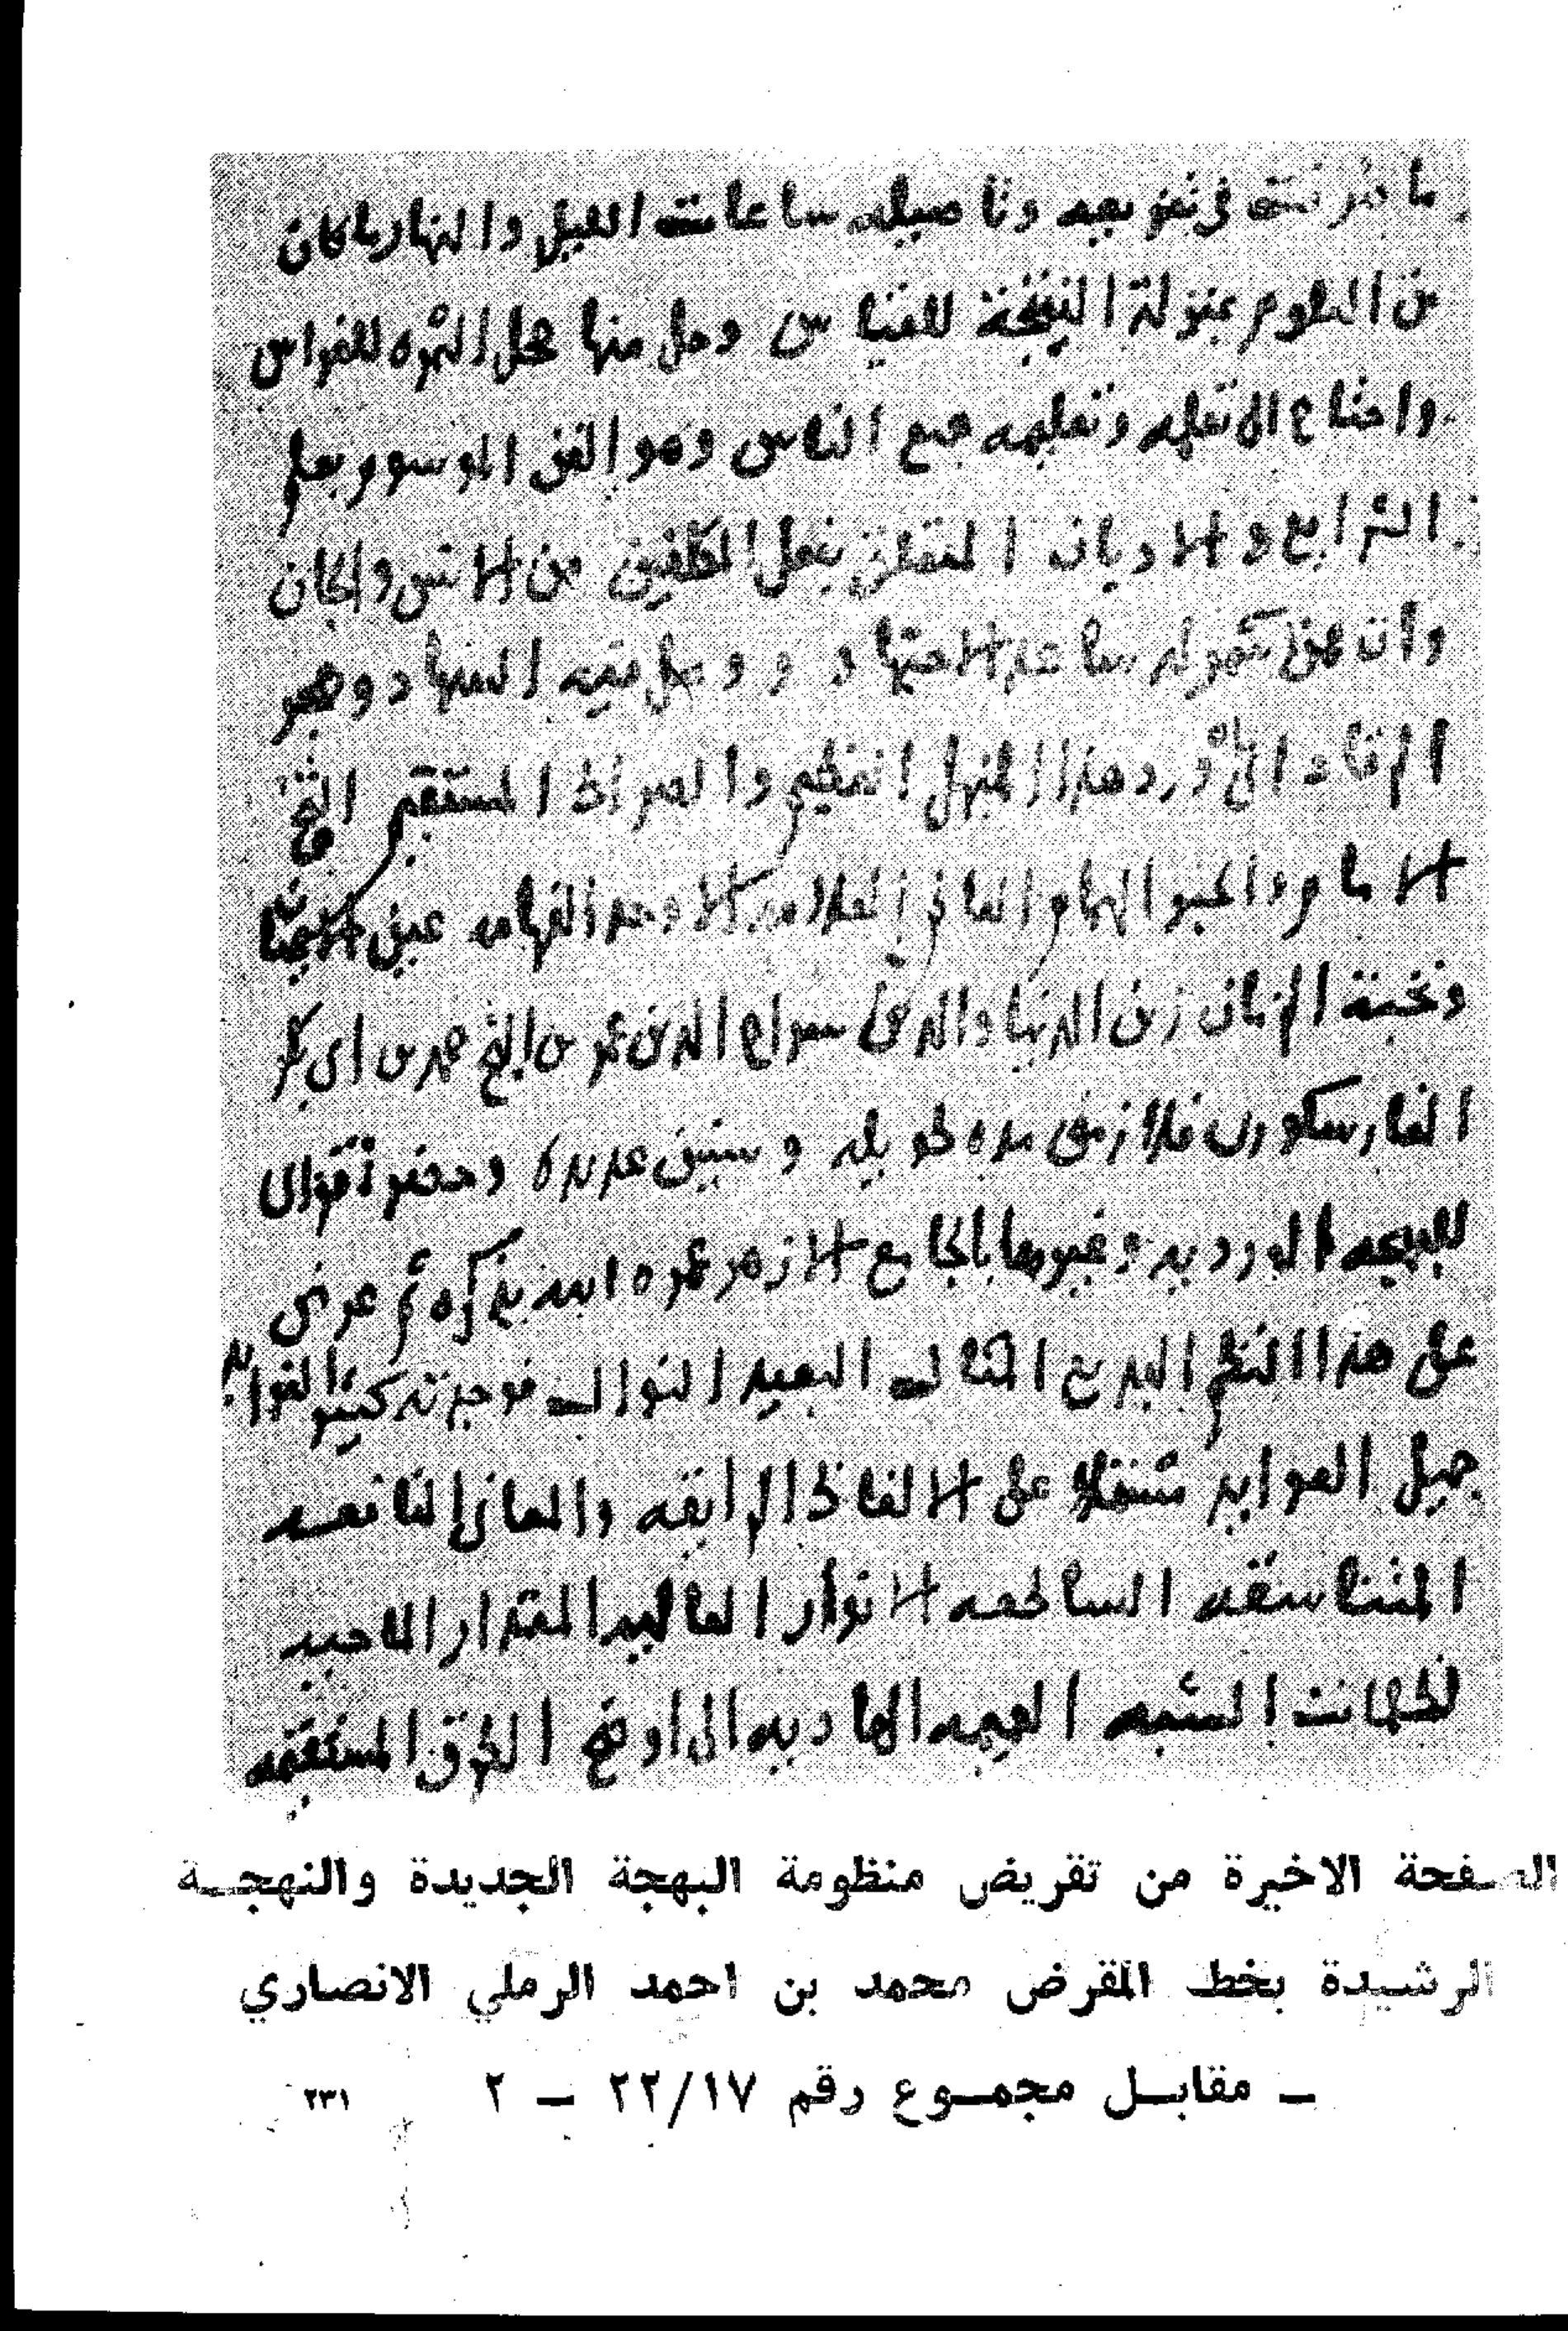 ما صرفت في تفريعه وتاصيله ساعات الليل والنهار ما كان
من العلوم بمنزلة النتيجة للقياس وحل منها محل الثمره للغراس
واحتاج الى تعلمه وتعليمه جميع الناس وهو الفن الموسوم بعلم
الشرايع والاديان المتعلق بفعل المكلفين من الانس والجان
وان ممن شمر له ساعد الاجتهاد و و فيه السهاد وهجر
الرقاد الى ان ورد هذا المنهل العظيم والصراط المستقيم الشيخ
الامام والحبر الهمام العالم العلامه الاوحد الفهامه عين
ونخبة الزمان زين الدنيا والدين سراج الدين عمر بن الشيخ محمد بن ابي بكر
الفارسكوري فلازمني مده طويله وسنين عديده وحضر قراتي
للبهجه الورديه وغيرها بالجامع الازهر عمره الله بذكره ثم عرض
على هذا النظم البديع المثال البعيد النوال فوجدته كثير الفوايد
جميل العوايد مشتملا على الالفاظ الرايقه والمعاني
المتناسقه الساطعه الانوار العاليه المقدار الماحيه
لظلمات الشبه الهاديه الى اوضح الطرق المستقيمه
الصفحة الاخيرة من تقريض منظومة البهجة الجديدة والنهجـة
الرشيدة بخط المقرض محمد بن احمد الرملي الانصاري
ـ مقابـل مجمـوع رقم ٢٢/١٧ ـ ٢ ٢٣١